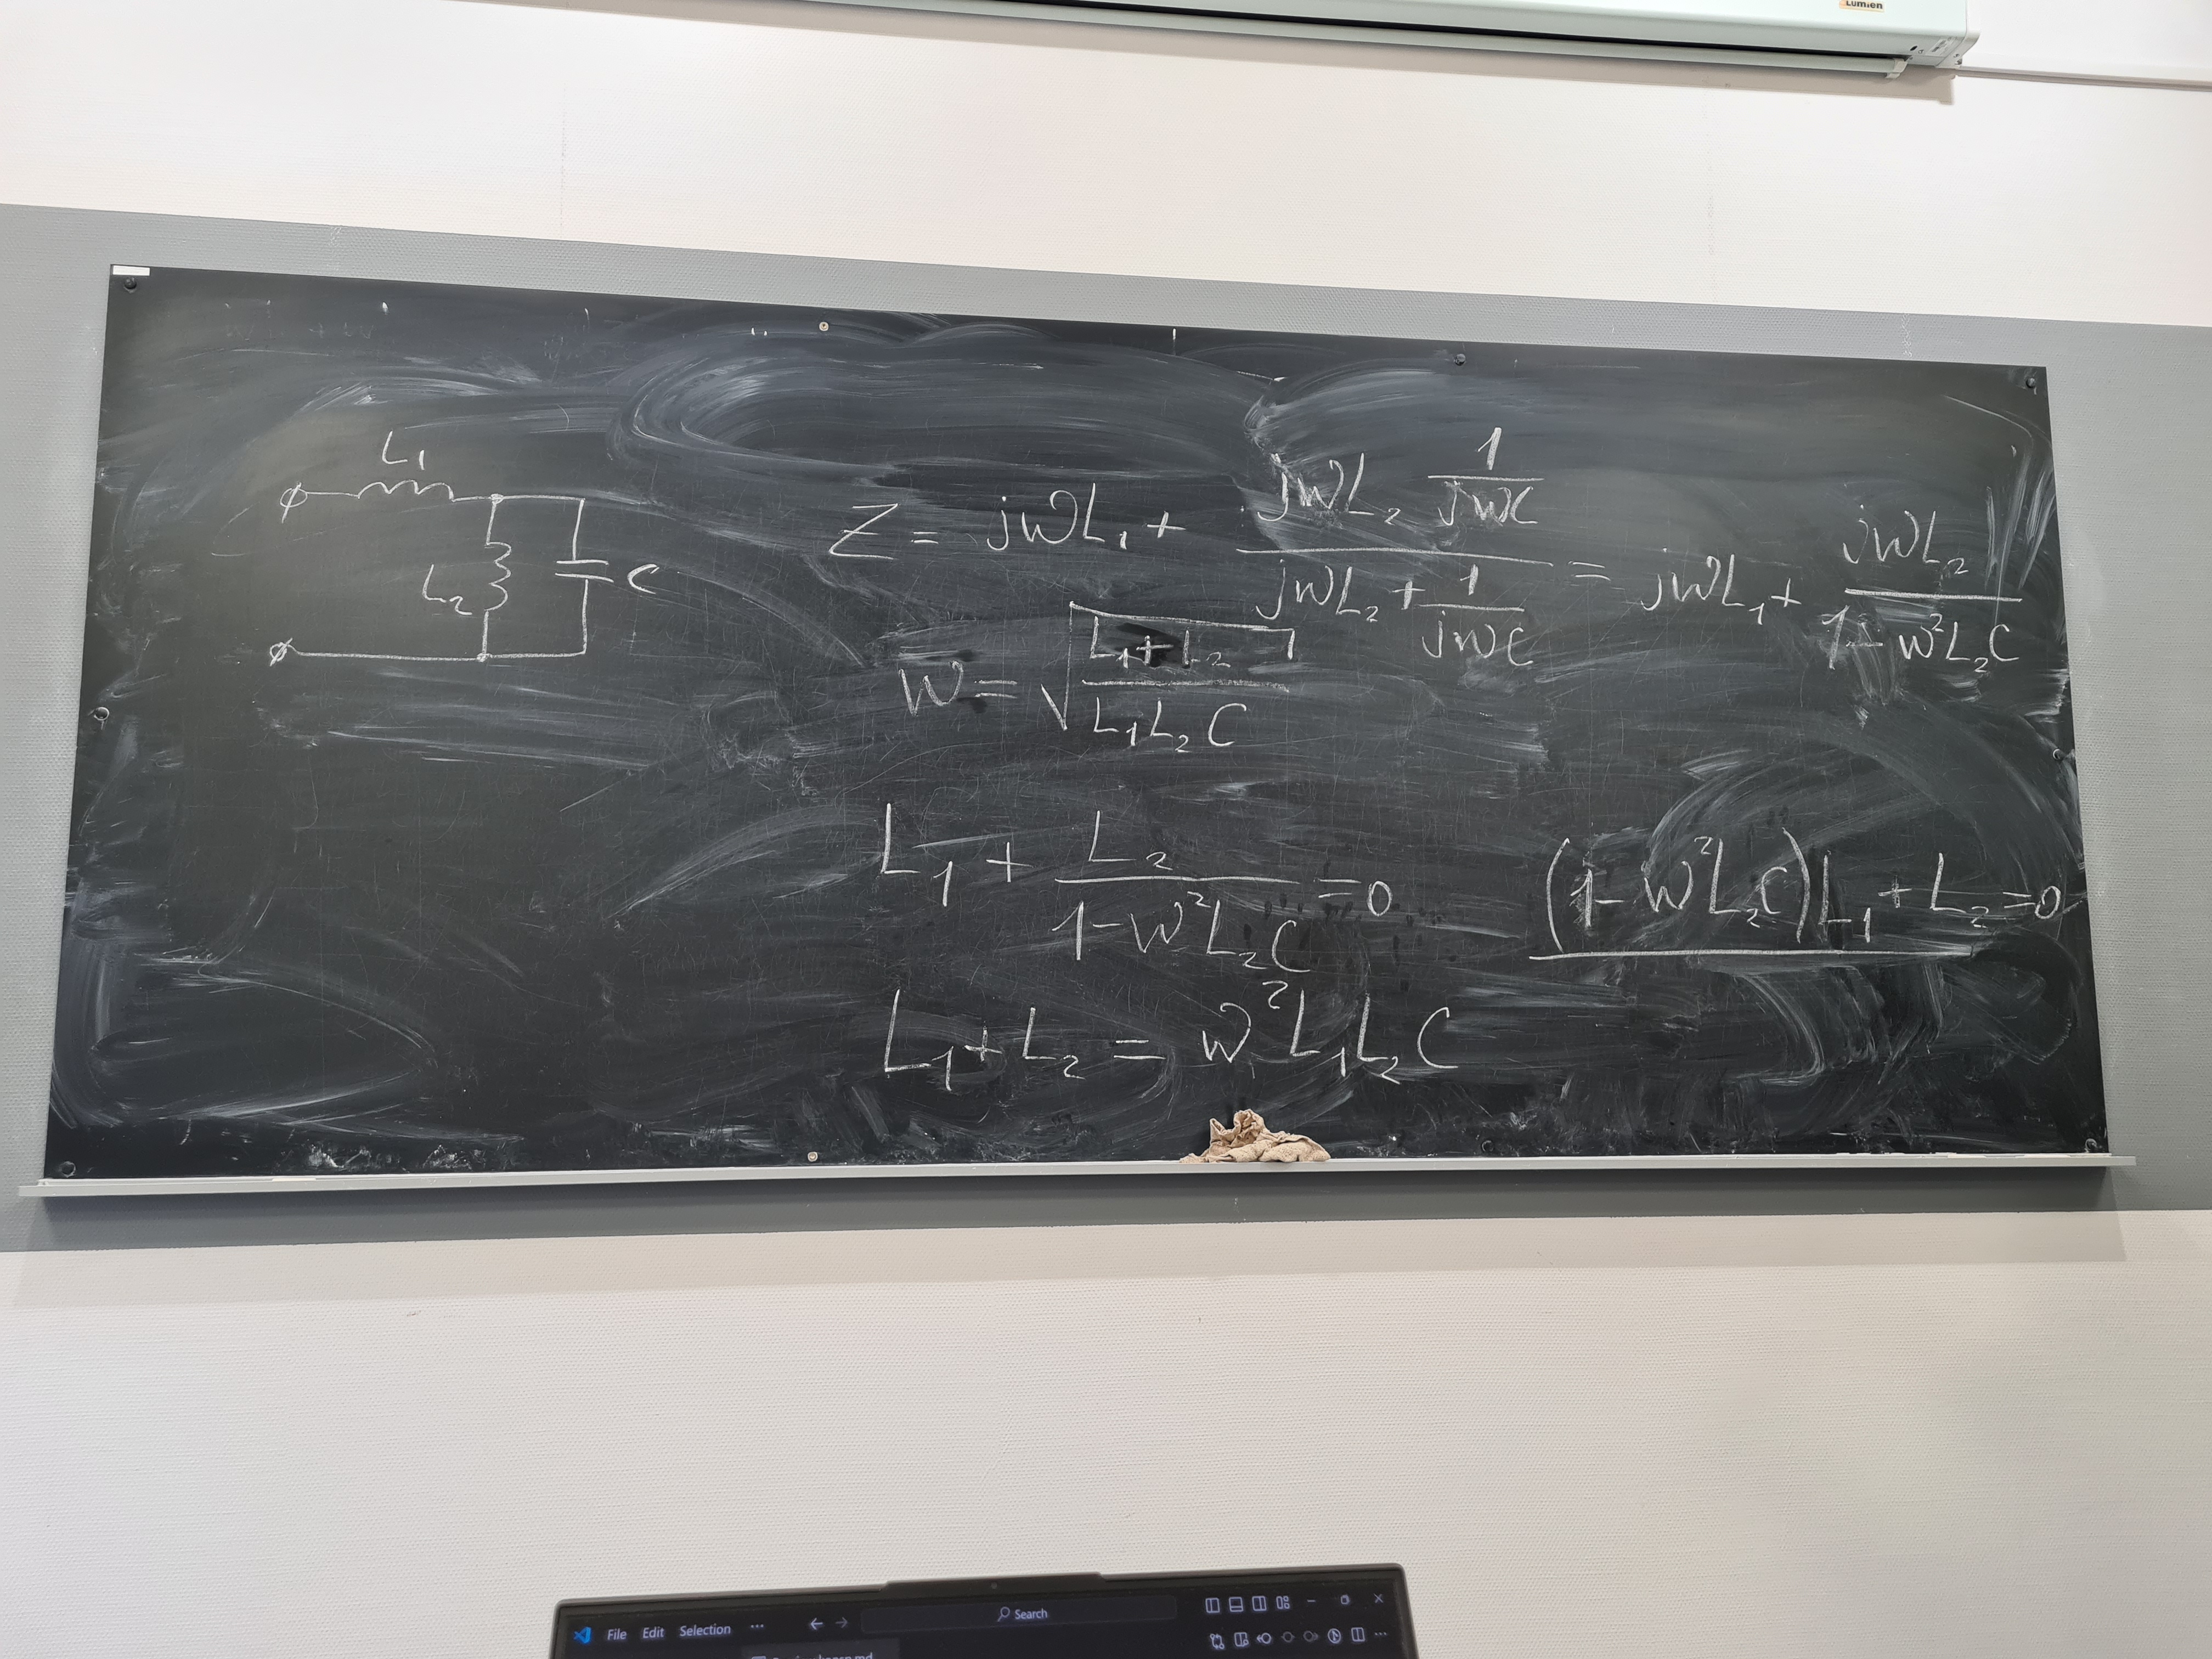 Lumien
L₁
L₂ C
Z = jωL₁ + (jωL₂ 1/(jωC))/(jωL₂ + 1/(jωC)) = jωL₁ + jωL₂/(1 - ω²L₂C)
ω = √((L₁ + L₂)/(L₁L₂C))
L₁ + L₂/(1 - ω²L₂C) = 0
(1 - ω²L₂C)L₁ + L₂ = 0
L₁ + L₂ = ω²L₁L₂C
File Edit Selection ··· Search